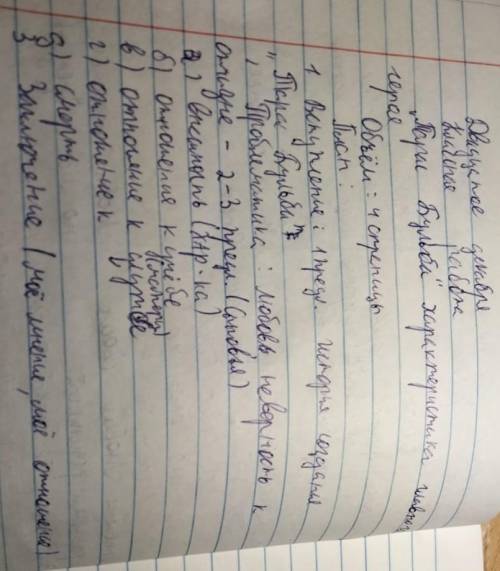 Двадцатое декабря
Классная работа
"Тарас Бульба" характеристика главного
героя
Объём: 4 страницы
План:
1 Вступление: 1 предл. история создания
"Тараса Бульбы"
Проблематика: любовь неверность к
отчизне - 2-3 предл. (сыновья)
2 а) внешность (хар-ка)
б) отношение к учёбе
в) отношение к службе
г) отношение к
д) смерть
3 Заключение (моё мнение, моё отношение)